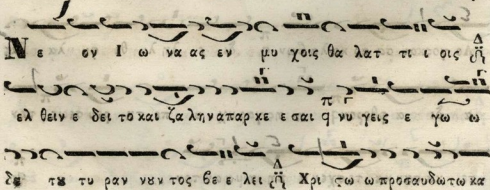 Νε ον Ι ω να ας εν μυ χοις θα λατ τι ι οις
ελ θειν ε δει το και ζα λην απ αρ κε ε σαι νυ γεις ε γω ω
δε του τυ ραν νουν τος βε ε λει Χρι τω ω προσ αυδω τω κα